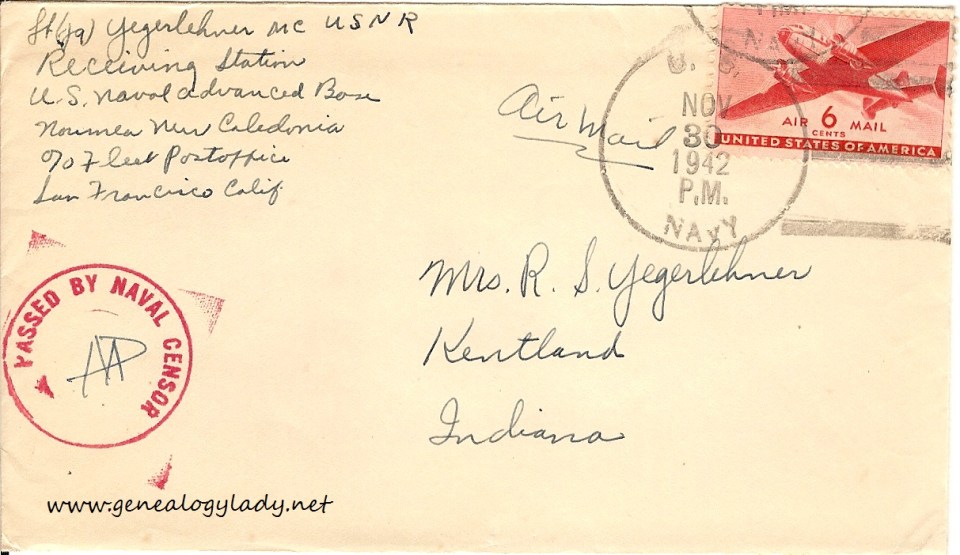 Lt(jg) Yegerlehner MC USNR
Receiving Station
U.S. Naval Advanced Base
Noumea New Caledonia
c/o Fleet Postoffice
San Francisco Calif.
Air Mail
U. S.
NAVY
NOV
30
1942
P.M.
NAVY
AIR 6 MAIL
CENTS
UNITED STATES OF AMERICA
Mrs. R. S. Yegerlehner
Kentland
Indiana
PASSED BY NAVAL CENSOR
www.genealogylady.net